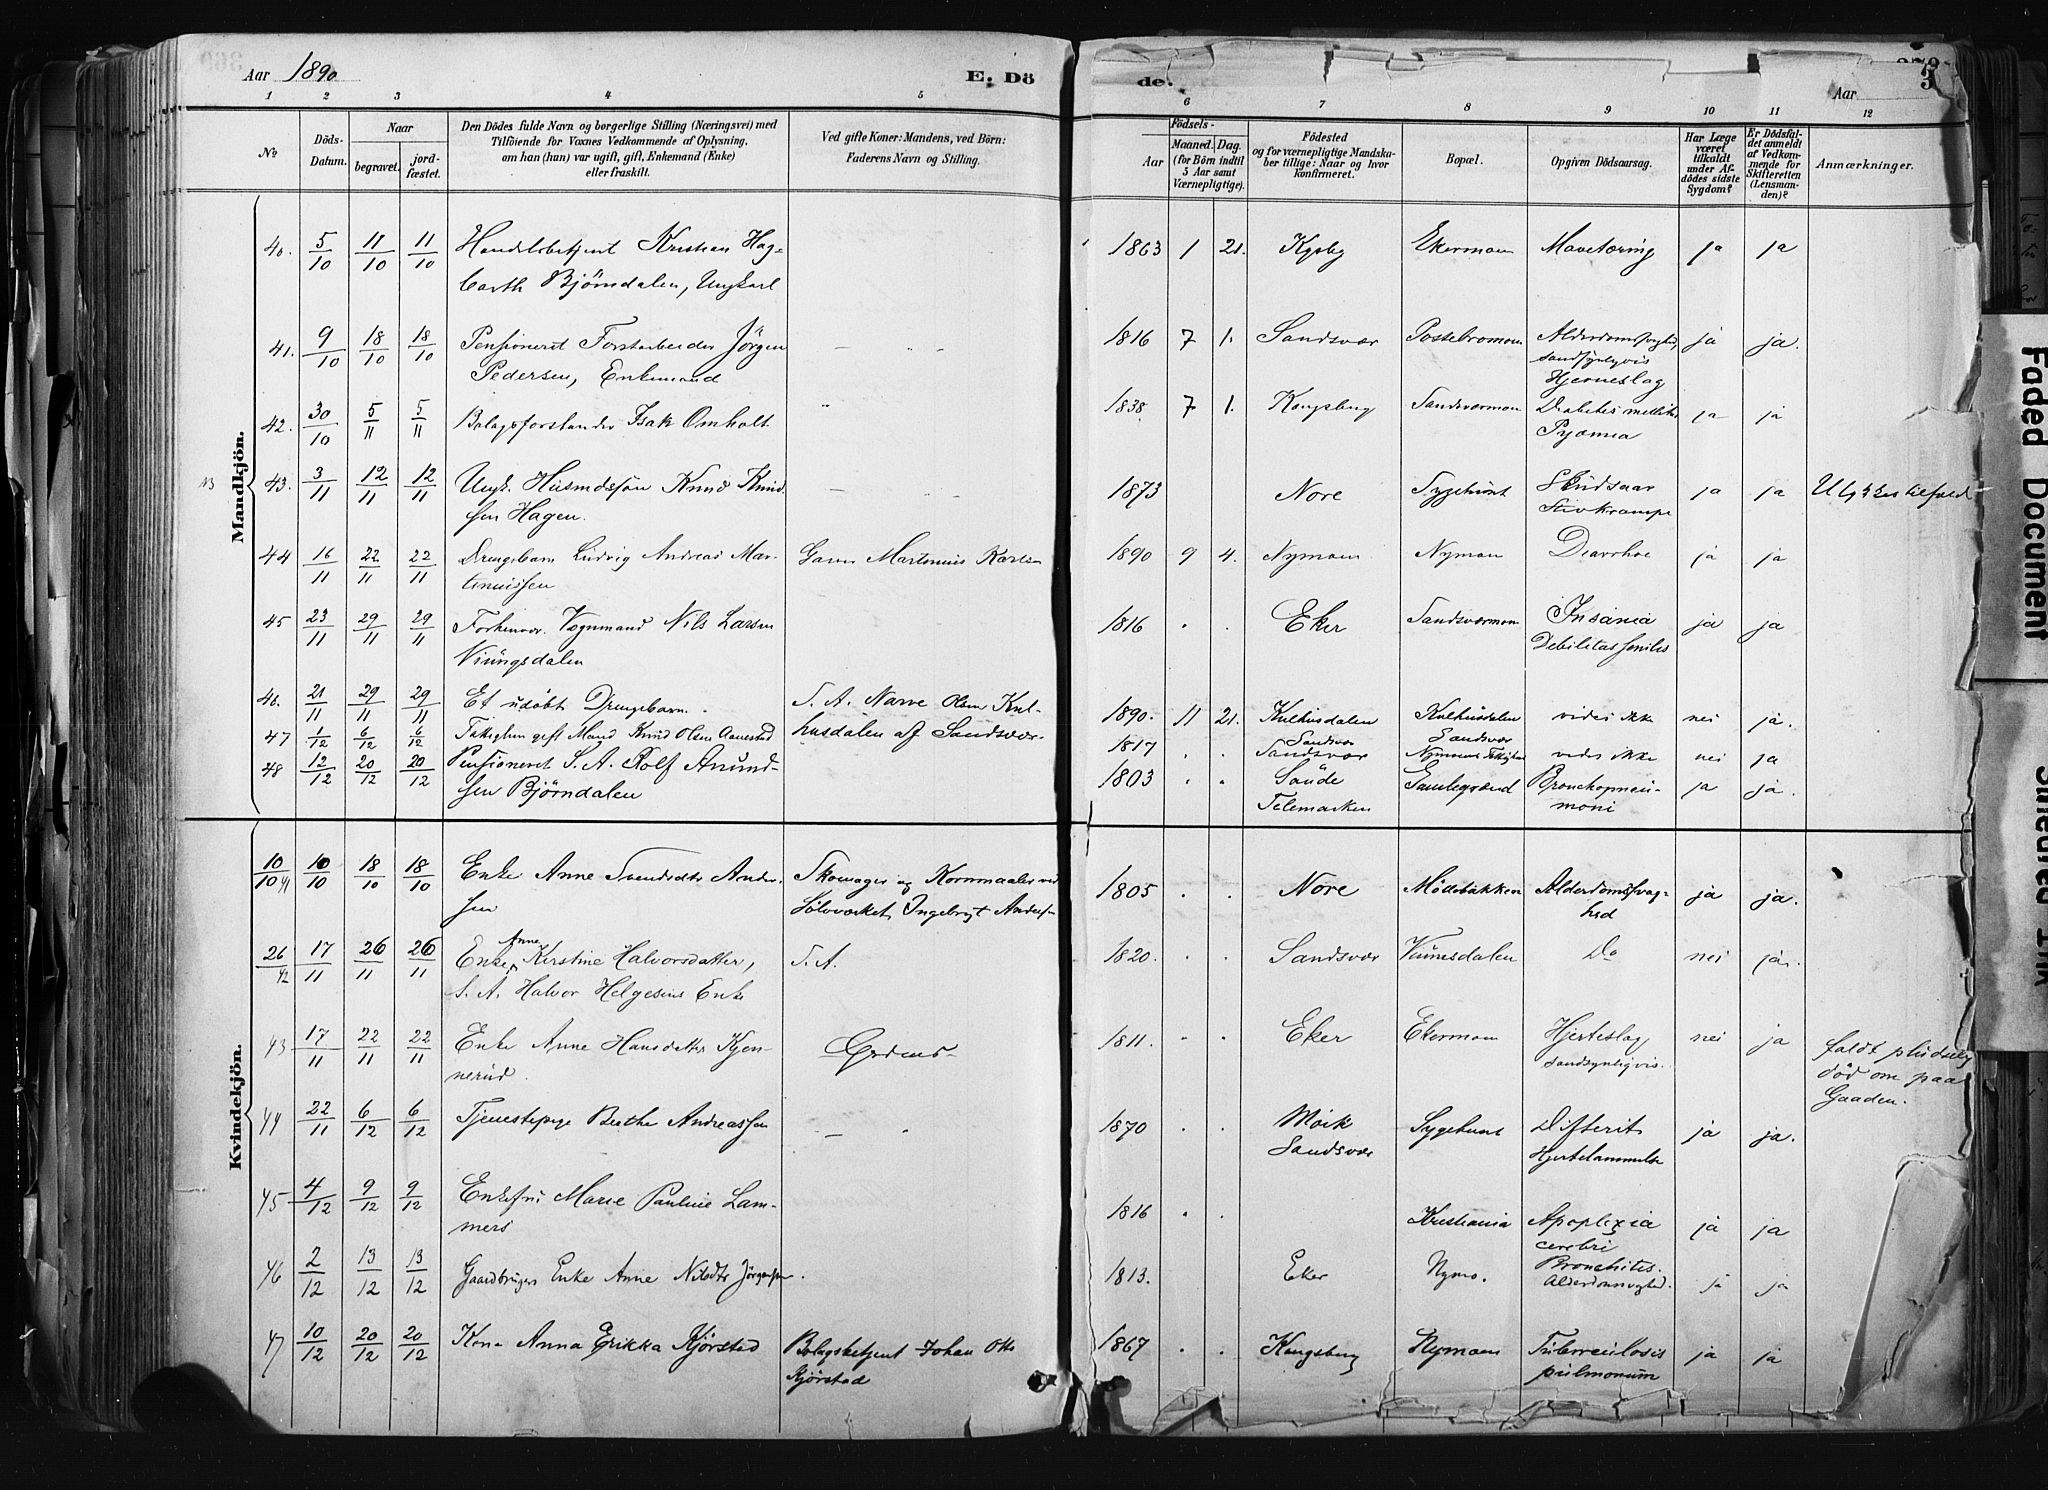 Aar 1890
E. Dö
de.
Aar
3
1 2 3 4 5 6 7 8 9 10 11 12
No
Döds-Datum.
Naar
begravet.
jord-fæstet.
Den Dödes fulde Navn og borgerlige Stilling (Næringsvei) med
Tilföiende for Voxnes Vedkommende af Oplysning,
om han (hun) var ugift, gift, Enkemand (Enke)
eller fraskilt.
Ved gifte Koner: Mandens, ved Börn:
Faderens Navn og Stilling.
Födsels-
Aar
Maaned. Dag.
(for Börn indtil
5 Aar samt
Værnepligtige).
Födested
og for værnepligtige Mandska-
ber tillige: Naar og hvor
konfirmeret.
Bopæl.
Opgiven Dödsaarsag.
Har Læge
været
tilkaldt
under Af-
dödes sidste
Sygdom?
Er Dödsfal-
det anmeldt
af Vedkom-
mende for
Skifteretten
(Lensman-
den)?
Anmærkninger.
Mandkjön.
40. 5/10 11/10 11/10 Handelsbetjent Kristian Hag- 1863 1 21. Kgsbg Ekermoen Mavetæring ja ja
barth Bjørndalen, Ungkarl
41. 9/10 18/10 18/10 Pensioneret Forstarbeider Jörgen 1816 7 1. Sandsvær Alderdomssvaghed, ja ja.
Pedersen, Enkemand sandsynligvis
Hjerneslag
42. 30/10 5/11 5/11 Bolagsforstander Isak Omholt 1838 7 1. Kongsberg Sandsværmoen Diabetes mellitus ja ja
Pyæmia
43. 3/11 12/11 12/11 Ungk. Husmdssøn Knud Knud- 1873 Nore Sygehuset Skudsaar ja ja Ulykkestilfæld
sen Hagen. Stivkrampe
44 16/11 22/11 22/11 Drengebarn Ludvig Andreas Mar- Martinius Karlsen 1890 9 4. Nymoen Nymoen Diarrhoe ja ja
tiniussen
45 23/11 29/11 29/11 Forhenvær. Vognmand Nils Larsen 1816 . . Eker Sandsværmoen Insania ja ja
Vinungsdalen Debilitas senilis
46. 21/11 29/11 29/11 Et udøbt Drengebarn. S. A. Narve Olsen Kul- 1890. 11 21. Kulhusdalen Kulhusdalen vides ikke nei ja.
husdalen af Sandsvær. Sandsvær Sandsvær
47 1/12 6/12 6/12 gift Mand Knud Olsen Aanerud 1817 . . Sandsvær vides ikke nei ja
48 12/12 20/12 20/12 Pensioneret S. A. Rolf Amund- 1803 . . Saude Gamlegrænd Bronchopneu- ja ja.
sen Bjørndalen Telemarken moni
Kvindekjön.
10/10 41 10/10 18/10 18/10 Enke Anne Svendsdtr Ander- Skomager og Kornmaaler ved 1805 . . Nore Mødebakken Alderdomssvag- ja ja.
sen Sølvværket Ingebregt Andersen hed
26/42 17/11 26/11 26/11 Enke Anne Kirstine Halvorsdatter, S. A. 1820. . . Sandsvær Vinnesdalen Do nei ja.
S. A. Halvor Helgesens Enke
43 17/11 22/11 22/11 Enke Anne Hansdatter Kjen- 1811. . . Eker Ekermoen Hjerteslag nei ja faldt pludselig
nerud. sandsynligvis. død om paa
Gaaden.
44 22/11 6/12 6/12 Tjenestepige Berthe Andreassen 1870 . . Moik Sygehuset Difterit ja ja.
Sandsvær Hjertelammelse
45 4/12 9/12 9/12 Enkefru Marie Pauline Lam- 1816 . . Kristiania Apoplexia ja ja
mers cerebri
46 2/12 13/12 13/12 Gaardbrugers Enke Anne Nilsdtr Jörgensen. 1813. Eker Nymo. Bronchitis. ja ja
Alderdomssvaghed.
47 10/12 20/12 20/12 Kone Anna Erikka Kjørstad Bolagsbetjent Johan Otto 1867 . . Kongsberg Nymoen Tuberculosis ja ja
Kjørstad pulmonum
Faded Document
Smeared Ink